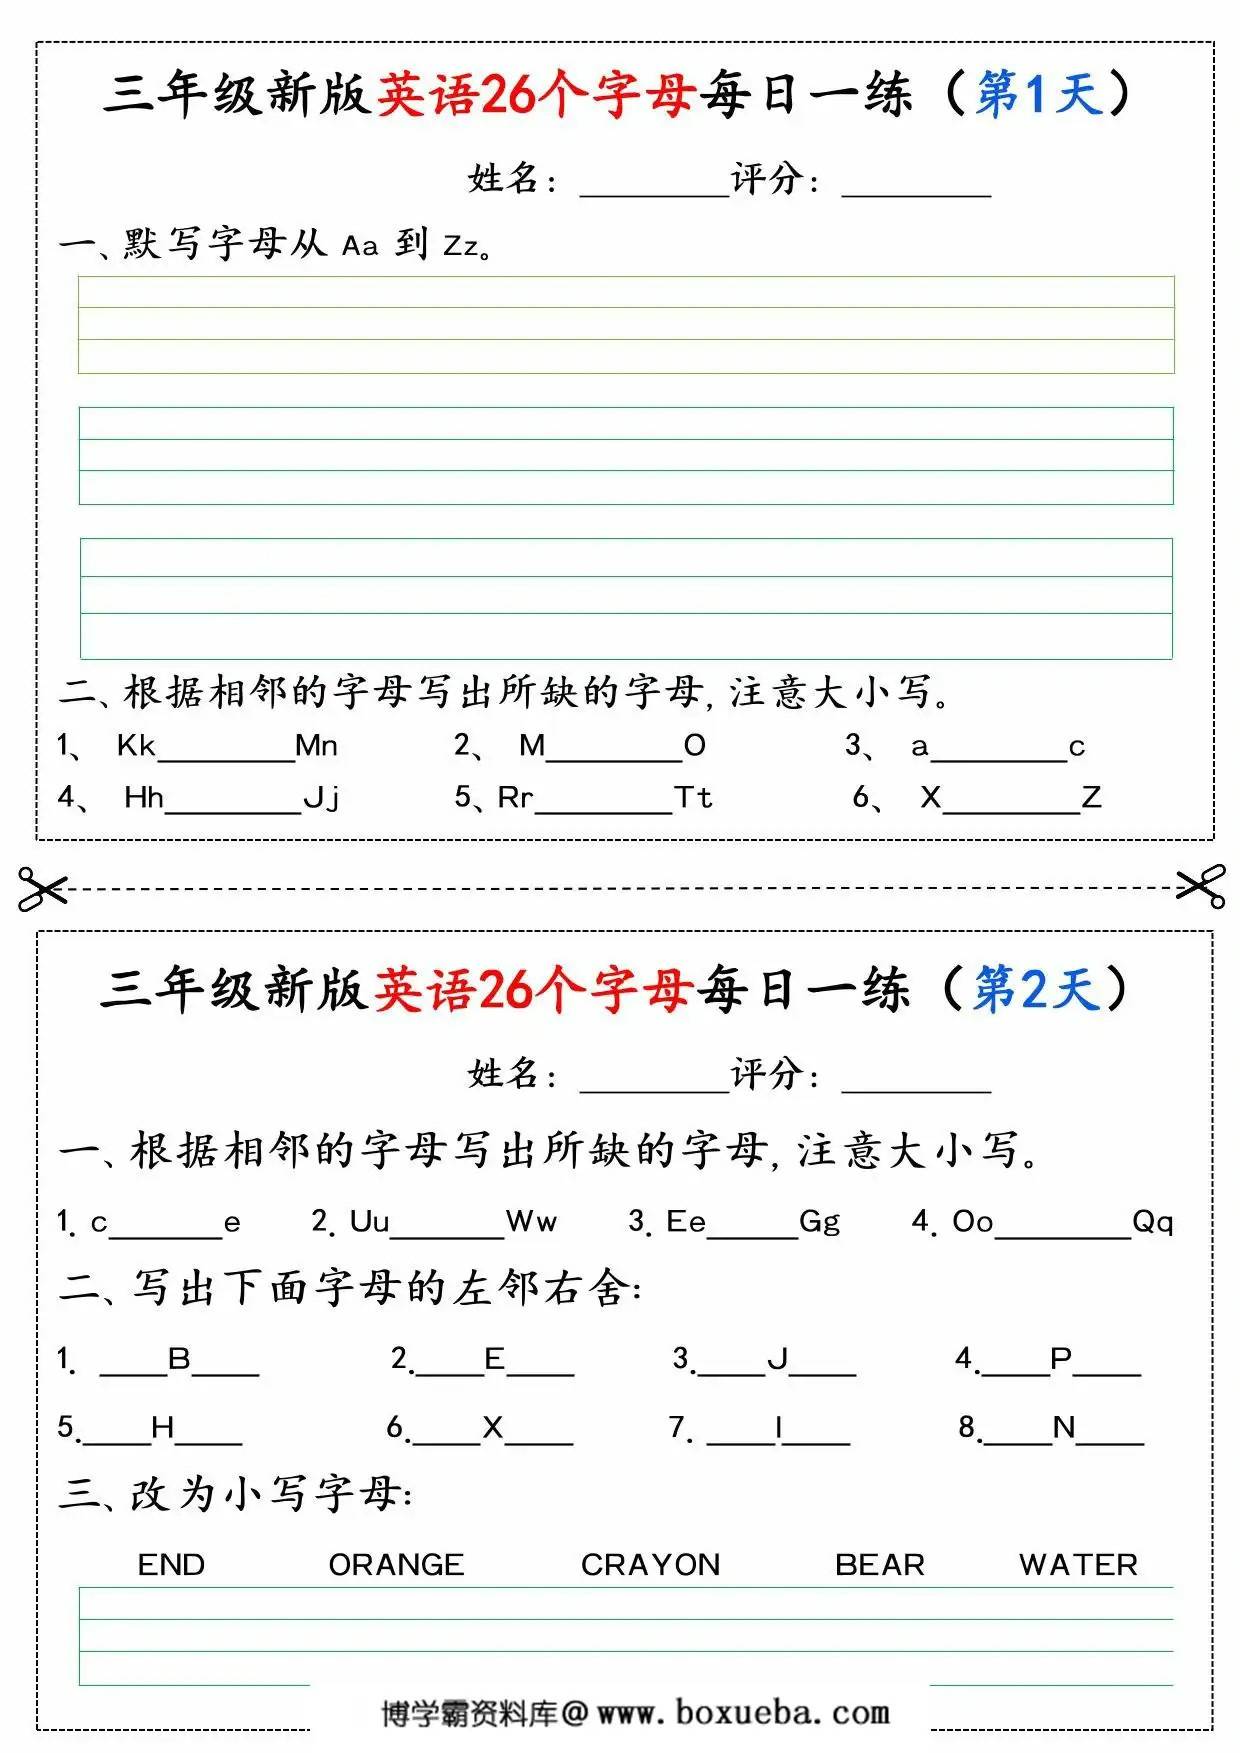 三年级新版英语26个字母每日一练（第1天）
姓名：________评分：________
一、默写字母从 Aa 到 Zz。
二、根据相邻的字母写出所缺的字母,注意大小写。
1、 Kk________Mn 2、 M________O 3、 a________c
4、 Hh________Jj 5、Rr________Tt 6、 X________Z
三年级新版英语26个字母每日一练（第2天）
姓名：________评分：________
一、根据相邻的字母写出所缺的字母,注意大小写。
1. c_______e 2. Uu_______Ww 3. Ee______Gg 4. Oo________Qq
二、写出下面字母的左邻右舍:
1. ____B____ 2.____E____ 3.____J____ 4.____P____
5.____H____ 6.____X____ 7. ____I____ 8.____N____
三、改为小写字母:
END ORANGE CRAYON BEAR WATER
博学霸资料库@www.boxueba.com